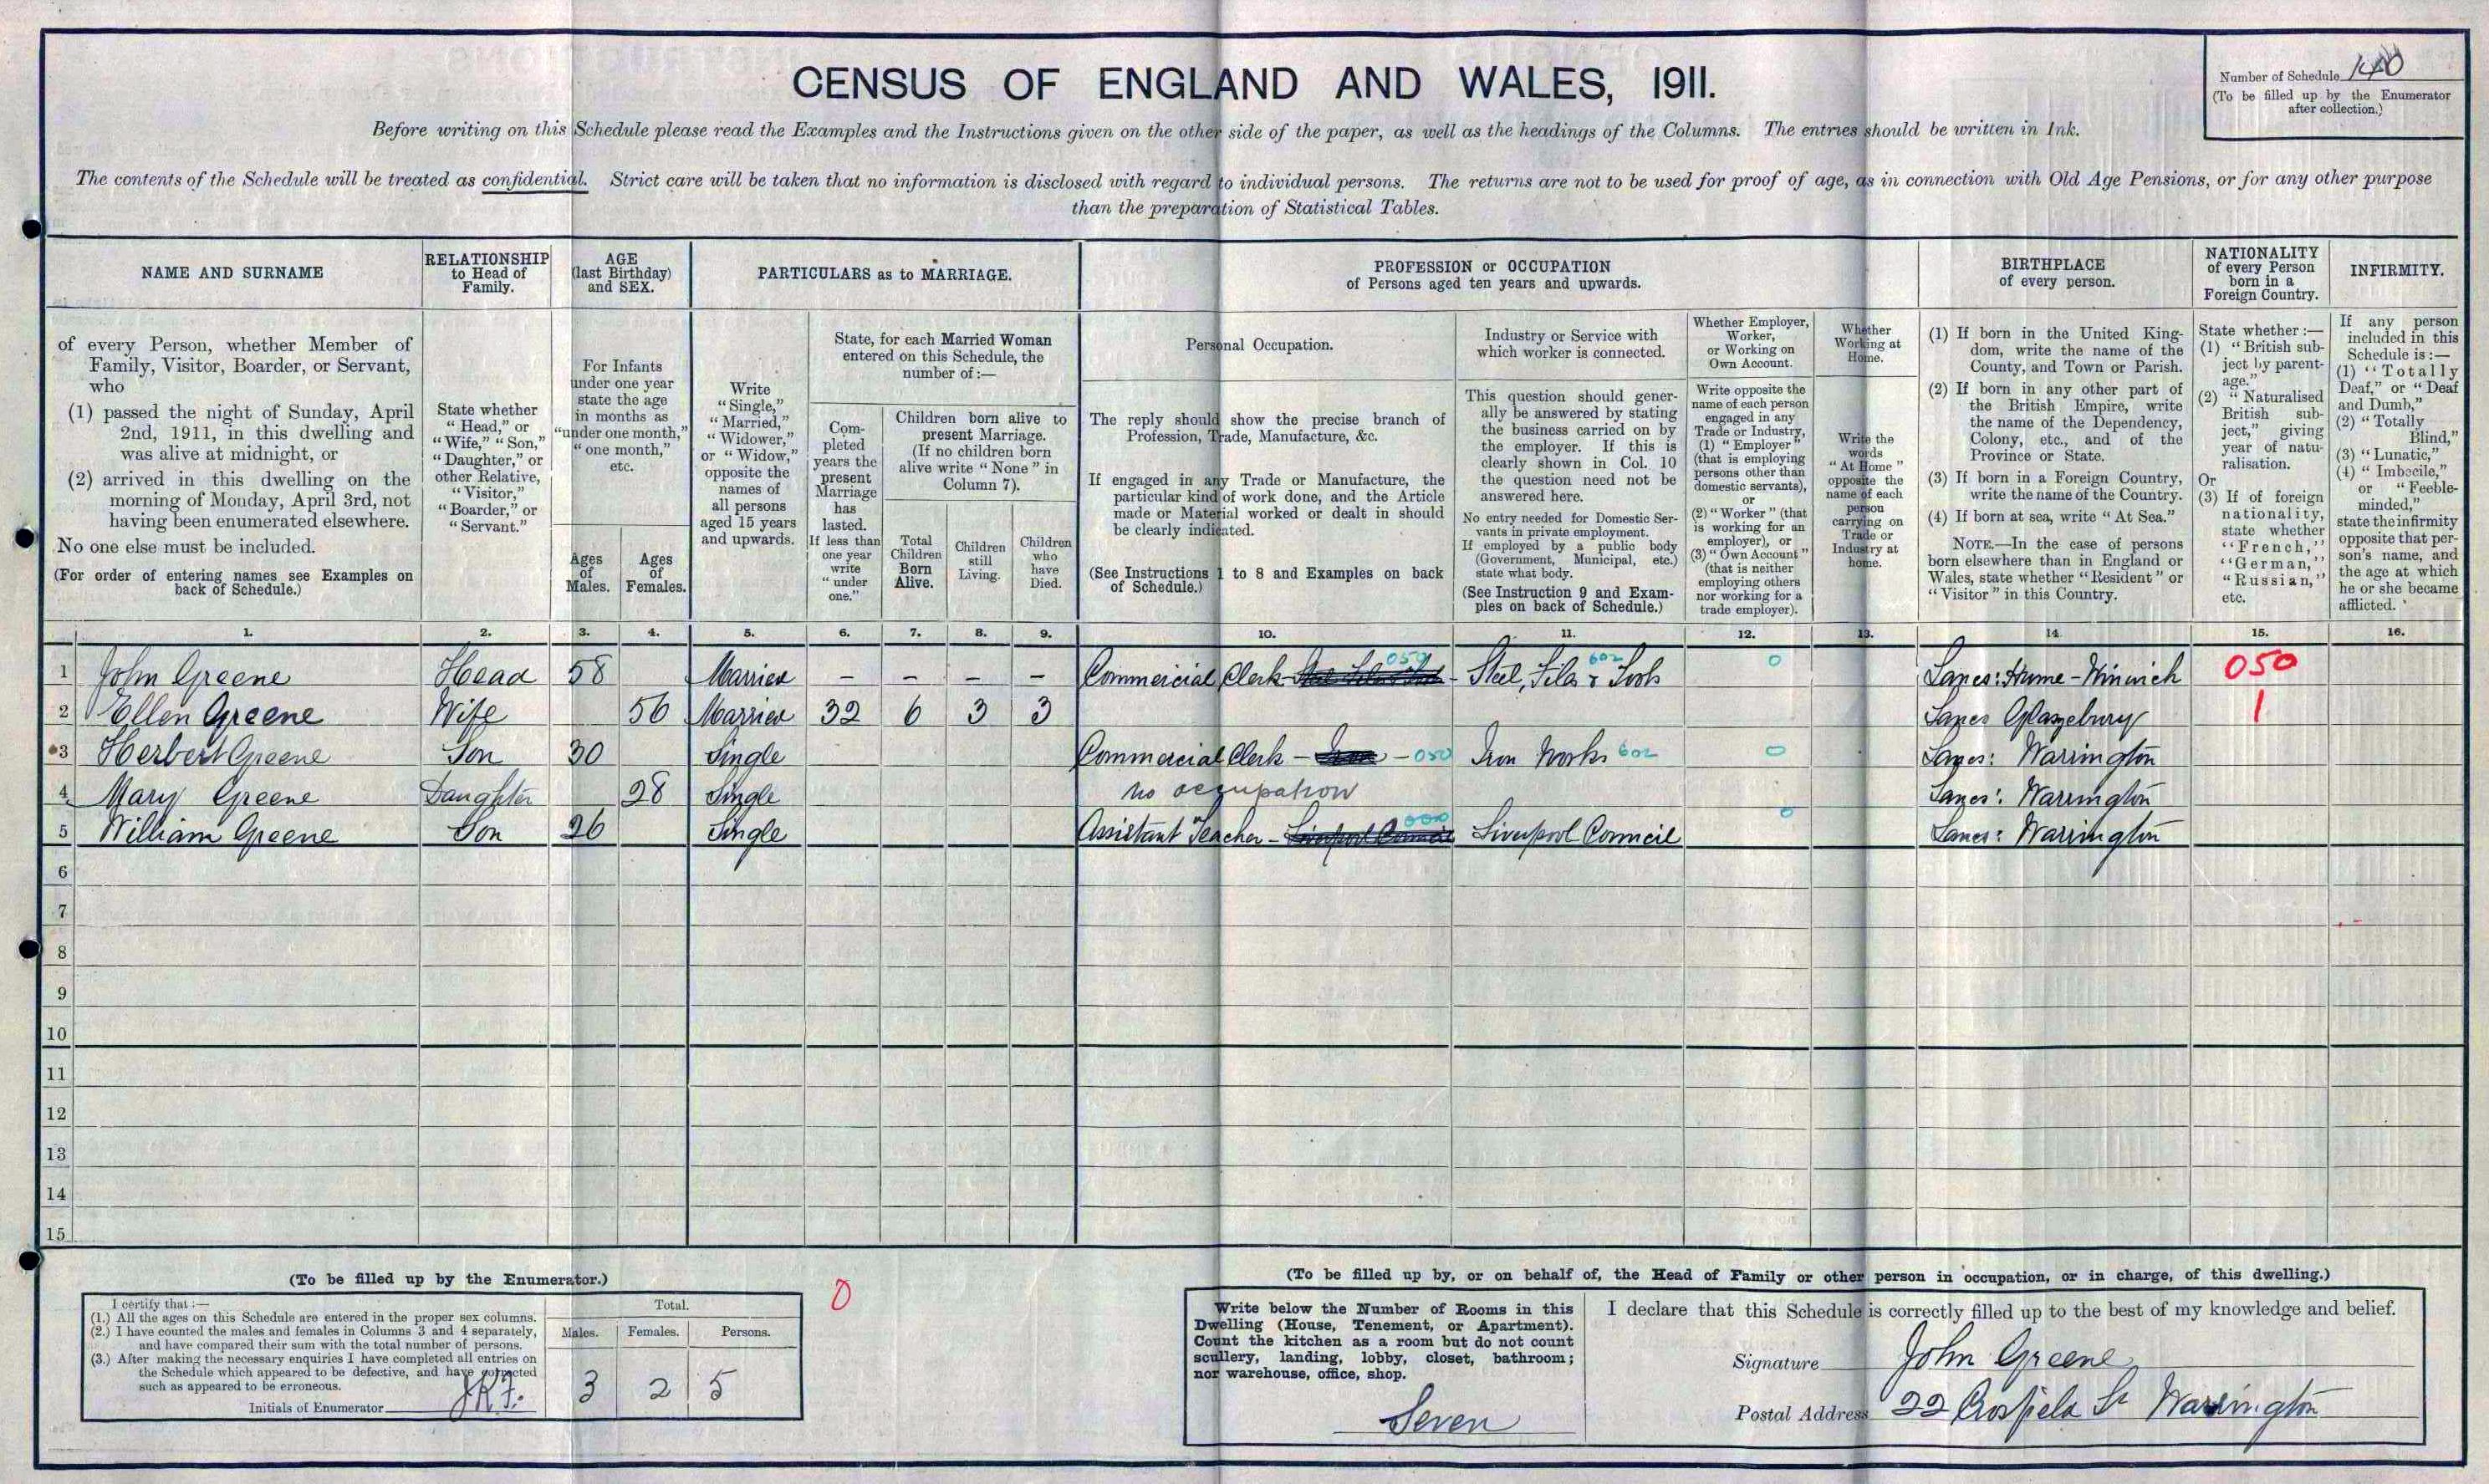 CENSUS OF ENGLAND AND WALES, 1911.
Number of Schedule 140
(To be filled up by the Enumerator
after collection.)
Before writing on this Schedule please read the Examples and the Instructions given on the other side of the paper, as well as the headings of the Columns. The entries should be written in Ink.
The contents of the Schedule will be treated as confidential. Strict care will be taken that no information is disclosed with regard to individual persons. The returns are not to be used for proof of age, as in connection with Old Age Pensions, or for any other purpose
than the preparation of Statistical Tables.
NAME AND SURNAME
of every Person, whether Member of
Family, Visitor, Boarder, or Servant,
who
(1) passed the night of Sunday, April
2nd, 1911, in this dwelling and
was alive at midnight, or
(2) arrived in this dwelling on the
morning of Monday, April 3rd, not
having been enumerated elsewhere.
No one else must be included.
(For order of entering names see Examples on
back of Schedule.)
RELATIONSHIP
to Head of
Family.
State whether
"Head," or
"Wife," "Son,"
"Daughter," or
other Relative,
"Visitor,"
"Boarder," or
"Servant."
AGE
(last Birthday)
and SEX.
For Infants
under one year
state the age
in months as
"under one month,"
"one month,"
etc.
Ages
of
Males.
Ages
of
Females.
PARTICULARS as to MARRIAGE.
Write
"Single,"
"Married,"
"Widower,"
or "Widow,"
opposite the
names of
all persons
aged 15 years
and upwards.
State, for each Married Woman
entered on this Schedule, the
number of:—
Com-
pleted
years the
present
Marriage
has
lasted.
If less than
one year
write
"under
one."
Children born alive to
present Marriage.
(If no children born
alive write "None" in
Column 7).
Total
Children
Born
Alive.
Children
still
Living.
Children
who
have
Died.
PROFESSION or OCCUPATION
of Persons aged ten years and upwards.
Personal Occupation.
The reply should show the precise branch of
Profession, Trade, Manufacture, &c.
If engaged in any Trade or Manufacture, the
particular kind of work done, and the Article
made or Material worked or dealt in should
be clearly indicated.
(See Instructions 1 to 8 and Examples on back
of Schedule.)
Industry or Service with
which worker is connected.
This question should gener-
ally be answered by stating
the business carried on by
the employer. If this is
clearly shown in Col. 10
the question need not be
answered here.
No entry needed for Domestic Ser-
vants in private employment.
If employed by a public body
(Government, Municipal, etc.)
state what body.
(See Instruction 9 and Exam-
ples on back of Schedule.)
Whether Employer,
Worker,
or Working on
Own Account.
Write opposite the
name of each person
engaged in any
Trade or Industry,
(1) "Employer"
(that is employing
persons other than
domestic servants),
or
(2) "Worker" (that
is working for an
employer), or
(3) "Own Account"
(that is neither
employing others
nor working for a
trade employer).
Whether
Working at
Home.
Write the
words
"At Home"
opposite the
name of each
person
carrying on
Trade or
Industry at
home.
BIRTHPLACE
of every person.
(1) If born in the United King-
dom, write the name of the
County, and Town or Parish.
(2) If born in any other part of
the British Empire, write
the name of the Dependency,
Colony, etc., and of the
Province or State.
(3) If born in a Foreign Country,
write the name of the Country.
(4) If born at sea, write "At Sea."
NOTE.—In the case of persons
born elsewhere than in England or
Wales, state whether "Resident" or
"Visitor" in this Country.
NATIONALITY
of every Person
born in a
Foreign Country.
State whether:—
(1) "British sub-
ject by parent-
age."
(2) "Naturalised
British sub-
ject," giving
year of natu-
ralisation.
Or
(3) If of foreign
nationality,
state whether
"French,"
"German,"
"Russian,"
etc.
INFIRMITY.
If any person
included in this
Schedule is:—
(1) "Totally
Deaf," or "Deaf
and Dumb,"
(2) "Totally
Blind,"
(3) "Lunatic,"
(4) "Imbecile,"
or "Feeble-
minded,"
state the infirmity
opposite that per-
son's name, and
the age at which
he or she became
afflicted.
1. 2. 3. 4. 5. 6. 7. 8. 9. 10. 11. 12. 13. 14 15. 16.
1 John Greene Head 58 Married – – – – Commercial Clerk 050 – Steel, Files & Tools 602 0 Lancs: Hume-Winwick 050
2 Ellen Greene Wife 56 Married 32 6 3 3 Lancs Glazebury 1
3 Herbert Greene Son 30 Single Commercial Clerk – 050 Iron Works 602 0 Lancs: Warrington
4 Mary Greene Daughter 28 Single no occupation Lancs: Warrington
5 William Greene Son 26 Single Assistant Teacher – 000 Liverpool Council 0 Lancs: Warrington
6
7
8
9
10
11
12
13
14
15
(To be filled up by the Enumerator.)
I certify that:—
(1.) All the ages on this Schedule are entered in the proper sex columns.
(2.) I have counted the males and females in Columns 3 and 4 separately,
and have compared their sum with the total number of persons.
(3.) After making the necessary enquiries I have completed all entries on
the Schedule which appeared to be defective, and have corrected
such as appeared to be erroneous.
Initials of Enumerator
Total.
Males. Females. Persons.
3 2 5
0
(To be filled up by, or on behalf of, the Head of Family or other person in occupation, or in charge, of this dwelling.)
Write below the Number of Rooms in this
Dwelling (House, Tenement, or Apartment).
Count the kitchen as a room but do not count
scullery, landing, lobby, closet, bathroom;
nor warehouse, office, shop.
Seven
I declare that this Schedule is correctly filled up to the best of my knowledge and belief.
Signature John Greene
Postal Address 22 Crosfield St Warrington